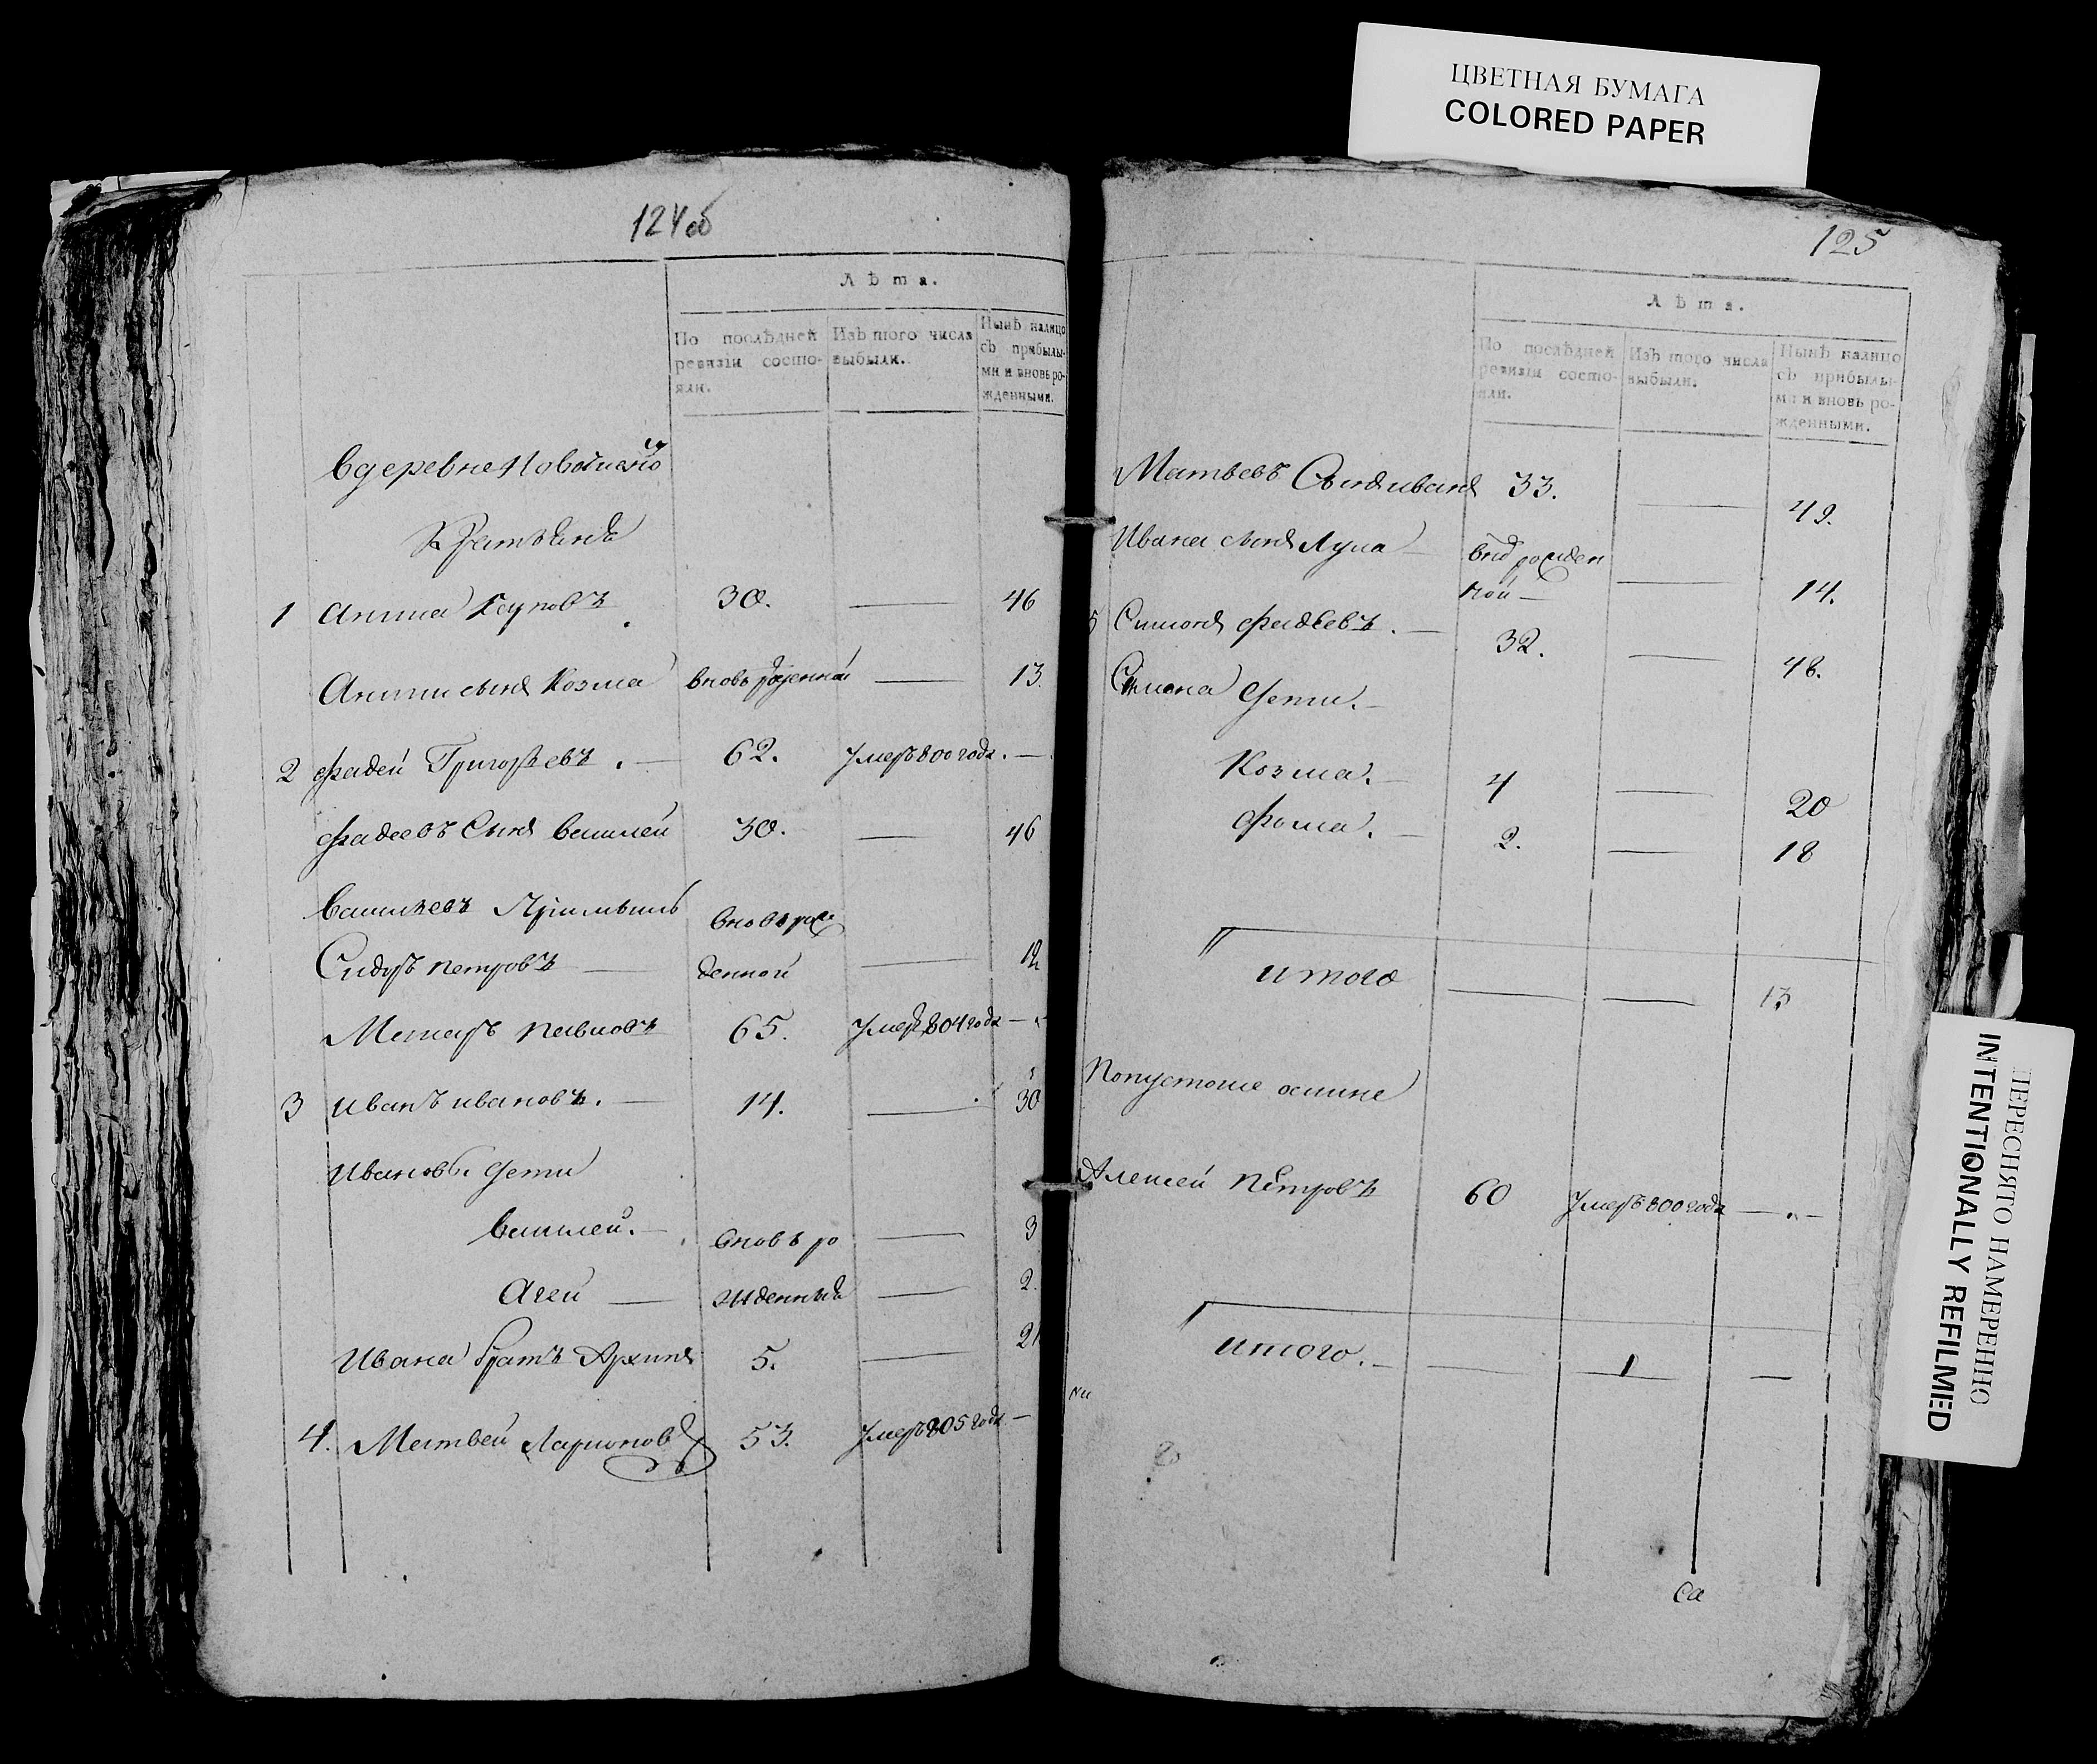 ЦВЕТНАЯ БУМАГА
COLORED PAPER
124об
Лѣта.
По послѣдней ревизіи состо-
яли.
Изъ того числа
выбыли.
Нынѣ налицо
съ прибылы-
ми и вновь ро-
жденными.
вдеревне
Крестьянъ
1 Антипа Карповъ 30. — 46
Антипи сынъ Козма вновь рожденной — 13.
2 Фадей Григорьевъ. — 62. Умеръ 800 года. —
Фадеевъ Сынъ василей 30. — 46
васильевъ вновь рож
Сидоръ петровъ — денной — 12
павловъ 65. Умеръ 804 года —
3 иванъ ивановъ. — 14. — 30
Ивановы дети
василей. — вновь ро — 3
Агей — жденныя — 2.
Ивана братъ Архипъ 5. — 21
4. Матвей Ларионовъ 53. Умеръ 805 года —
125
Лѣта.
По послѣдней
ревизіи состо-
яли.
Изъ того числа
выбыли.
Нынѣ налицо
съ прибылы-
ми и вновь ро-
жденными.
Матвеевъ Сынъ иванъ 33. — 49.
Ивана сынъ Лука — внов рожден
ной — — 14.
5 Симонъ Фадеевъ. — 32. — 48.
Симона дети. —
Козма. — 4 — 20
Фома. — 2. — 18
итого — — 13
Попустоше осмине
Алексей Петровъ 60 Умеръ 800 года —„—
итого. — — 1 —
са
ПЕРЕСНЯТО НАМЕРЕННО
INTENTIONALLY REFILMED